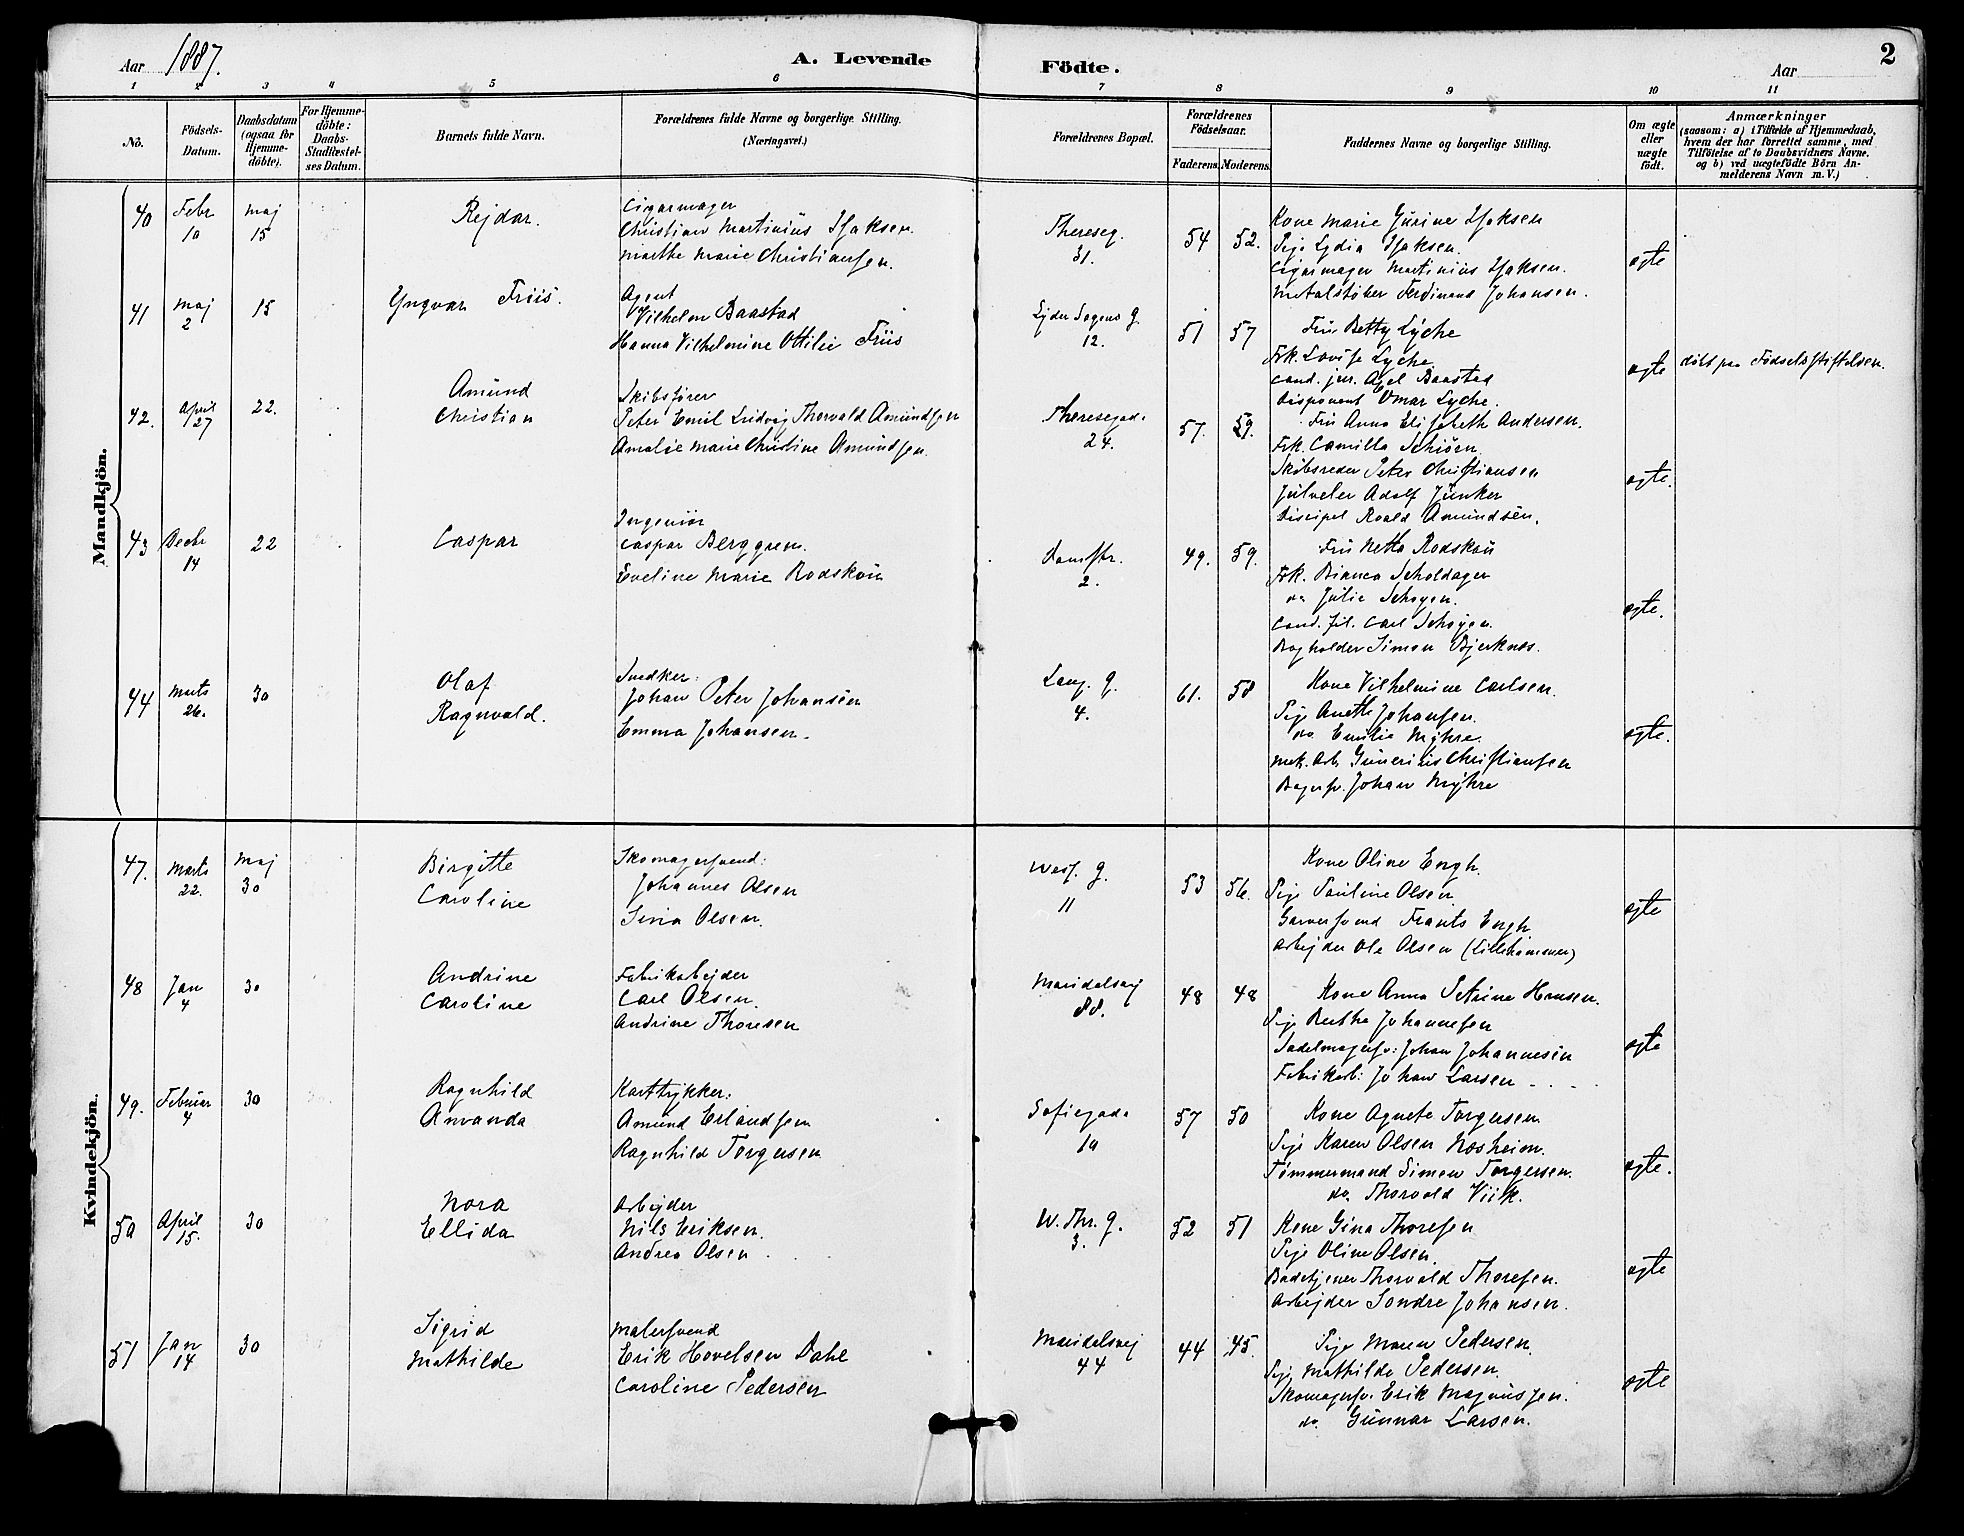 Aar 1887.
A. Levende Födte.
Aar
2
1 2 3 4 5 6 7 8 9 10 11
No.
Födsels-Datum.
Daabsdatum (ogsaa for Hjemme-döbte).
For Hjemme-döbte: Daabs-Stadfæstel-ses Datum.
Barnets fulde Navn.
Forældrenes fulde Navne og borgerlige Stilling. (Næringsvei.)
Forældrenes Bopæl.
Forældrenes Födselsaar.
Faderens. Moderens.
Faddernes Navne og borgerlige Stilling.
Om ægte eller uægte födt.
Anmærkninger
(saasom: a) i Tilfælde af Hjemmedaab, hvem der har forrettet samme, med Tilföielse af to Daabsvidners Navne. og b) ved uægtefödte Börn An-melderens Navn m. V.)
Mandkjön.
40 Febr 10 Maj 15 Rejdar.
Cigarmager
Christian Martinius Isaksen
Marthe Marie Christiansen.
Thereseg. 31. 54 52.
Kone Marie Gurine Isaksen
Pige Lydia Isaksen.
Cigarmager Martinius Isaksen.
Metalstøber Ferdinand Johansen.
ægte
41 Maj 2 15 Yngvar Friis.
Agent
Vilhelm Baastad
Hanna Vilhelmine Ottilie Friis
Lyder Sagens g. 12. 51 57
Fru Betty Lyche
Frk. Lovise Lyche
Cand. jur. Axel Baastad
Disponent Omar Lyche.
ægte døbt paa Fødselsstiftelsen.
42. April 27 22. Amund Christian
Skibsfører
Peter Emil Ludvig Thorvald Amundsen
Amalie Marie Christine Amundsen.
Theresegad. 24. 57. 59.
Fru Anna Elisabeth Andersen.
Frk. Camilla Schiöen
Skibsreder Peter Christiansen
Juveler Adolf Junker
Discipel Roald Amundsen.
ægte.
43 Decbr 14 22 Caspar
Ingeniör
Caspar Berggren.
Eveline Marie Rodskou
2. 49. 59.
Fru Netta Rodskou
Frk. Bianca Scholdager
do Julie Schogen.
Cand. fil. Carl Schojen.
Bogholder Simon Bjerknes.
ægte.
44 Marts 26. 30 Olaf Ragnvald.
Snedker:
Johan Peter Johansen
Emma Johansen.
Lang. g. 4. 61. 58
Kone Vilhelmine Carlsen.
Pige Anette Johansen.
do Emilie Myhre.
Mek. Arb. Gunerius Christiansen
Bagersv. Johan Myhre
ægte.
Kvindekjön.
47. Marts 22. Maj 30 Birgitte Caroline
Skomagersvend:
Johannes Olsen
Sina Olsen.
11 53 56.
Kone Oline Engh.
Pige Pauline Olsen
Garversvend Frants Engh
Arbejder Ole Olsen (Lillehammer)
ægte
48 Jan 4 30 Andrine Caroline
Fabrikabejder
Carl Olsen.
Andrine Thoresen
Maridalsvej 88. 48 48
Kone Anna Petrine Hansen.
Pige Berthe Johannesen
Sadelmagersv: Johan Johannesen
Fabrikarb: Johan Larsen
ægte
49. Februar 4 30 Ragnhild Amanda
Karttrykker:
Amund Erlandsen
Ragnhild Torgersen
Sofiegada 10 57 50
Kone Agnete Torgersen
Pige Karen Olsen Nosheim.
Tömmermand Simen Torgersen.
do. Thorvald Viik.
ægte.
50 April 15. 30 Nora Ellida
Arbejder
Nils Eriksen.
Andrea Olsen
W. Thr. g. 3. 52 51
Kone Gina Thoresen
Pige Oline Olsen.
Badetjener Thorvald Thoresen.
Arbejder Sondre Johansen.
ægte
51 Jan 14 30 Sigrid Mathilde
Malersvend
Erik Hovelsen Dahl
Caroline Pedersen
Maridalsvej 44 44 45.
Pige Maren Pedersen.
Pige Mathilde Pedersen.
Skomagersv. Erik Magnussen.
do. Gunnar Larsen.
ægte